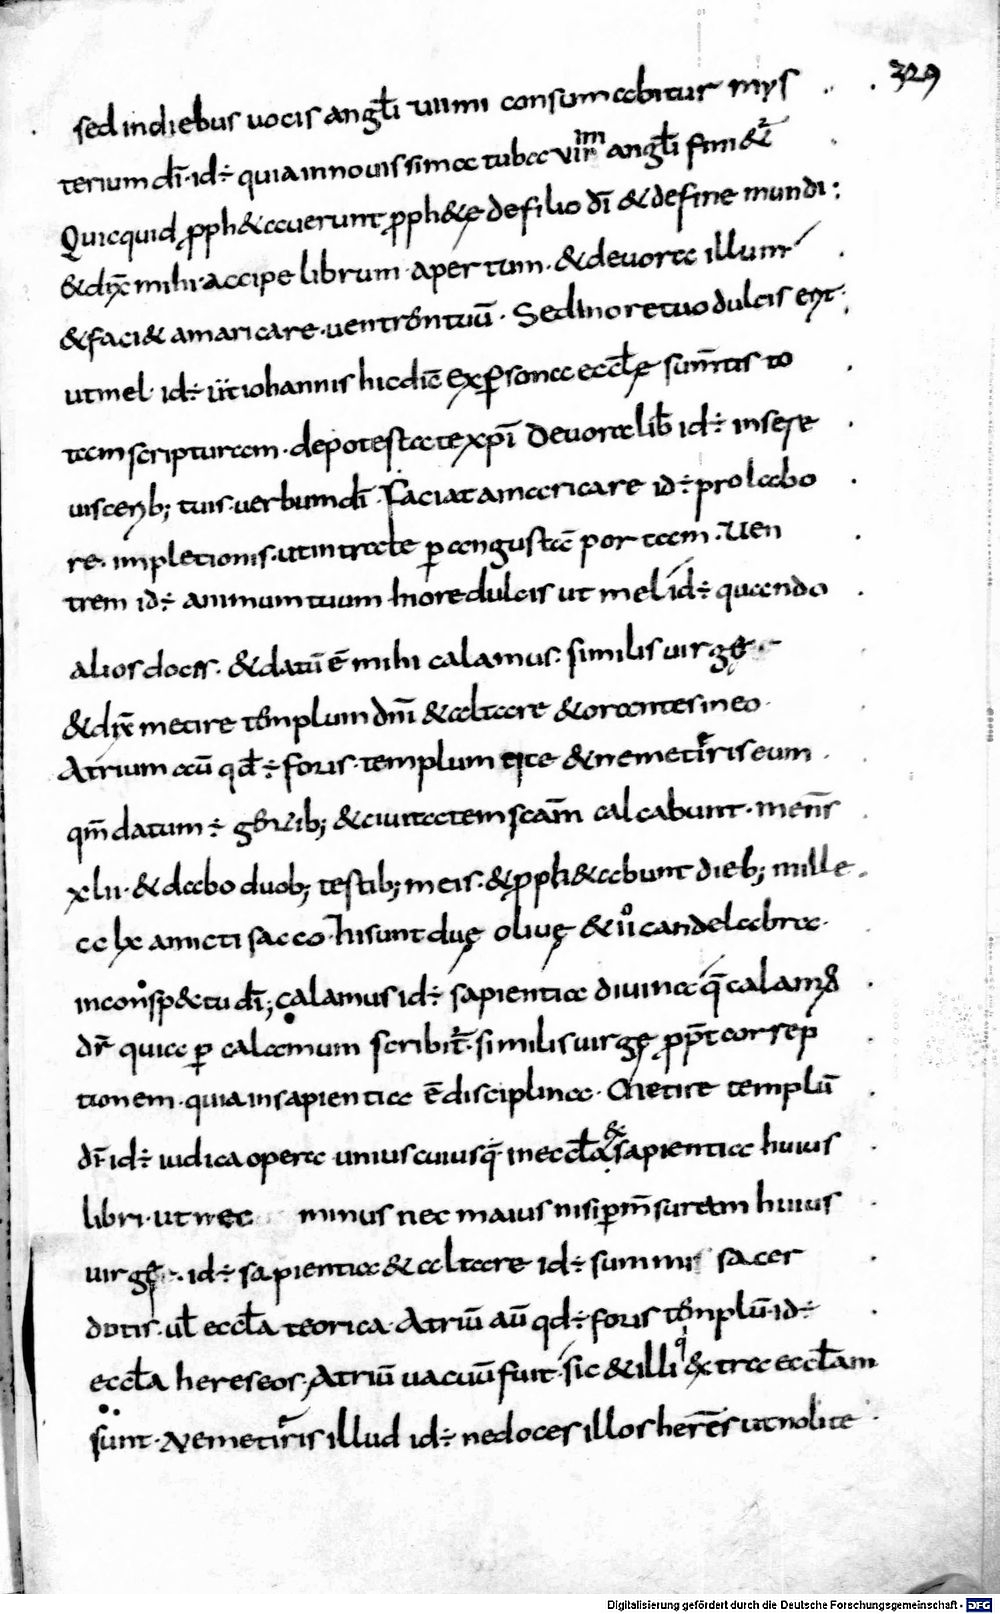 329
sed in diebus uocis angłi uiimi consummabitur mys
terium dī · id÷ quia in nouissima tuba viimi angłi fini&ur
Quicquid pph&auerunt pph&ę de filio dī & de fine mundi :
& dix̄ mihi · accipe librum · apertum · & deuora illum
& faci& amaricare · uentrēm tuū · Sed in ore tuo dulcis erit ·
ut mel · id÷ iohannis hic dic̄ ex psona eccłę sum̄tis to
tam scripturam · de potestate xpī Deuora lib̄ id÷ insere
uiscerib; tuis · uerbum dī · Faciat amaricare id÷ pro labo
re · impletionis · ut intrate p angustā portam · Uen
trem id÷ animum tuum In ore dulcis ut mel id÷ quando
alios doces · & datū ē mihi calamus · similis uirgę ·
& dix̄ metire templum dn̄i & altare & orantes in eo ·
Atrium aū qd̄÷ foris · templum eice & ne metiris eum ·
qm̄ datum÷ gentib; & ciuitatem scām calcabunt · mens̄
xlii · & dabo duob; testib; meis · & pph&abunt dieb; mille
cc lx amicti sacco · hi sunt duę oliuę & iio candelabra ·
in consp&tu dī ; calamus id÷ sapientia diuina q̄ calamus
dr̄ quia p calamum scribit̄ · similis uirgę ppt̄ correp
tionem · quia in sapientia ē disciplina · Metire templū
dī · id÷ iudica opera uniuscuiusq; in eccła & sapientia huius
libri · ut nec minus nec maius nisi p m̄suram huius
uirgę · id÷ sapientia & altare id÷ summi sacer
dotis · uł eccła teorica · Atriū aū qd÷ foris templū · id÷
eccła hereseos · Atriū uacuū fuit · sic & illi q̄ extra eccłam
sunt · Ne metiris illud id÷ ne doces illos heret̄s ut nolite
Digitalisierung gefördert durch die Deutsche Forschungsgemeinschaft - DFG